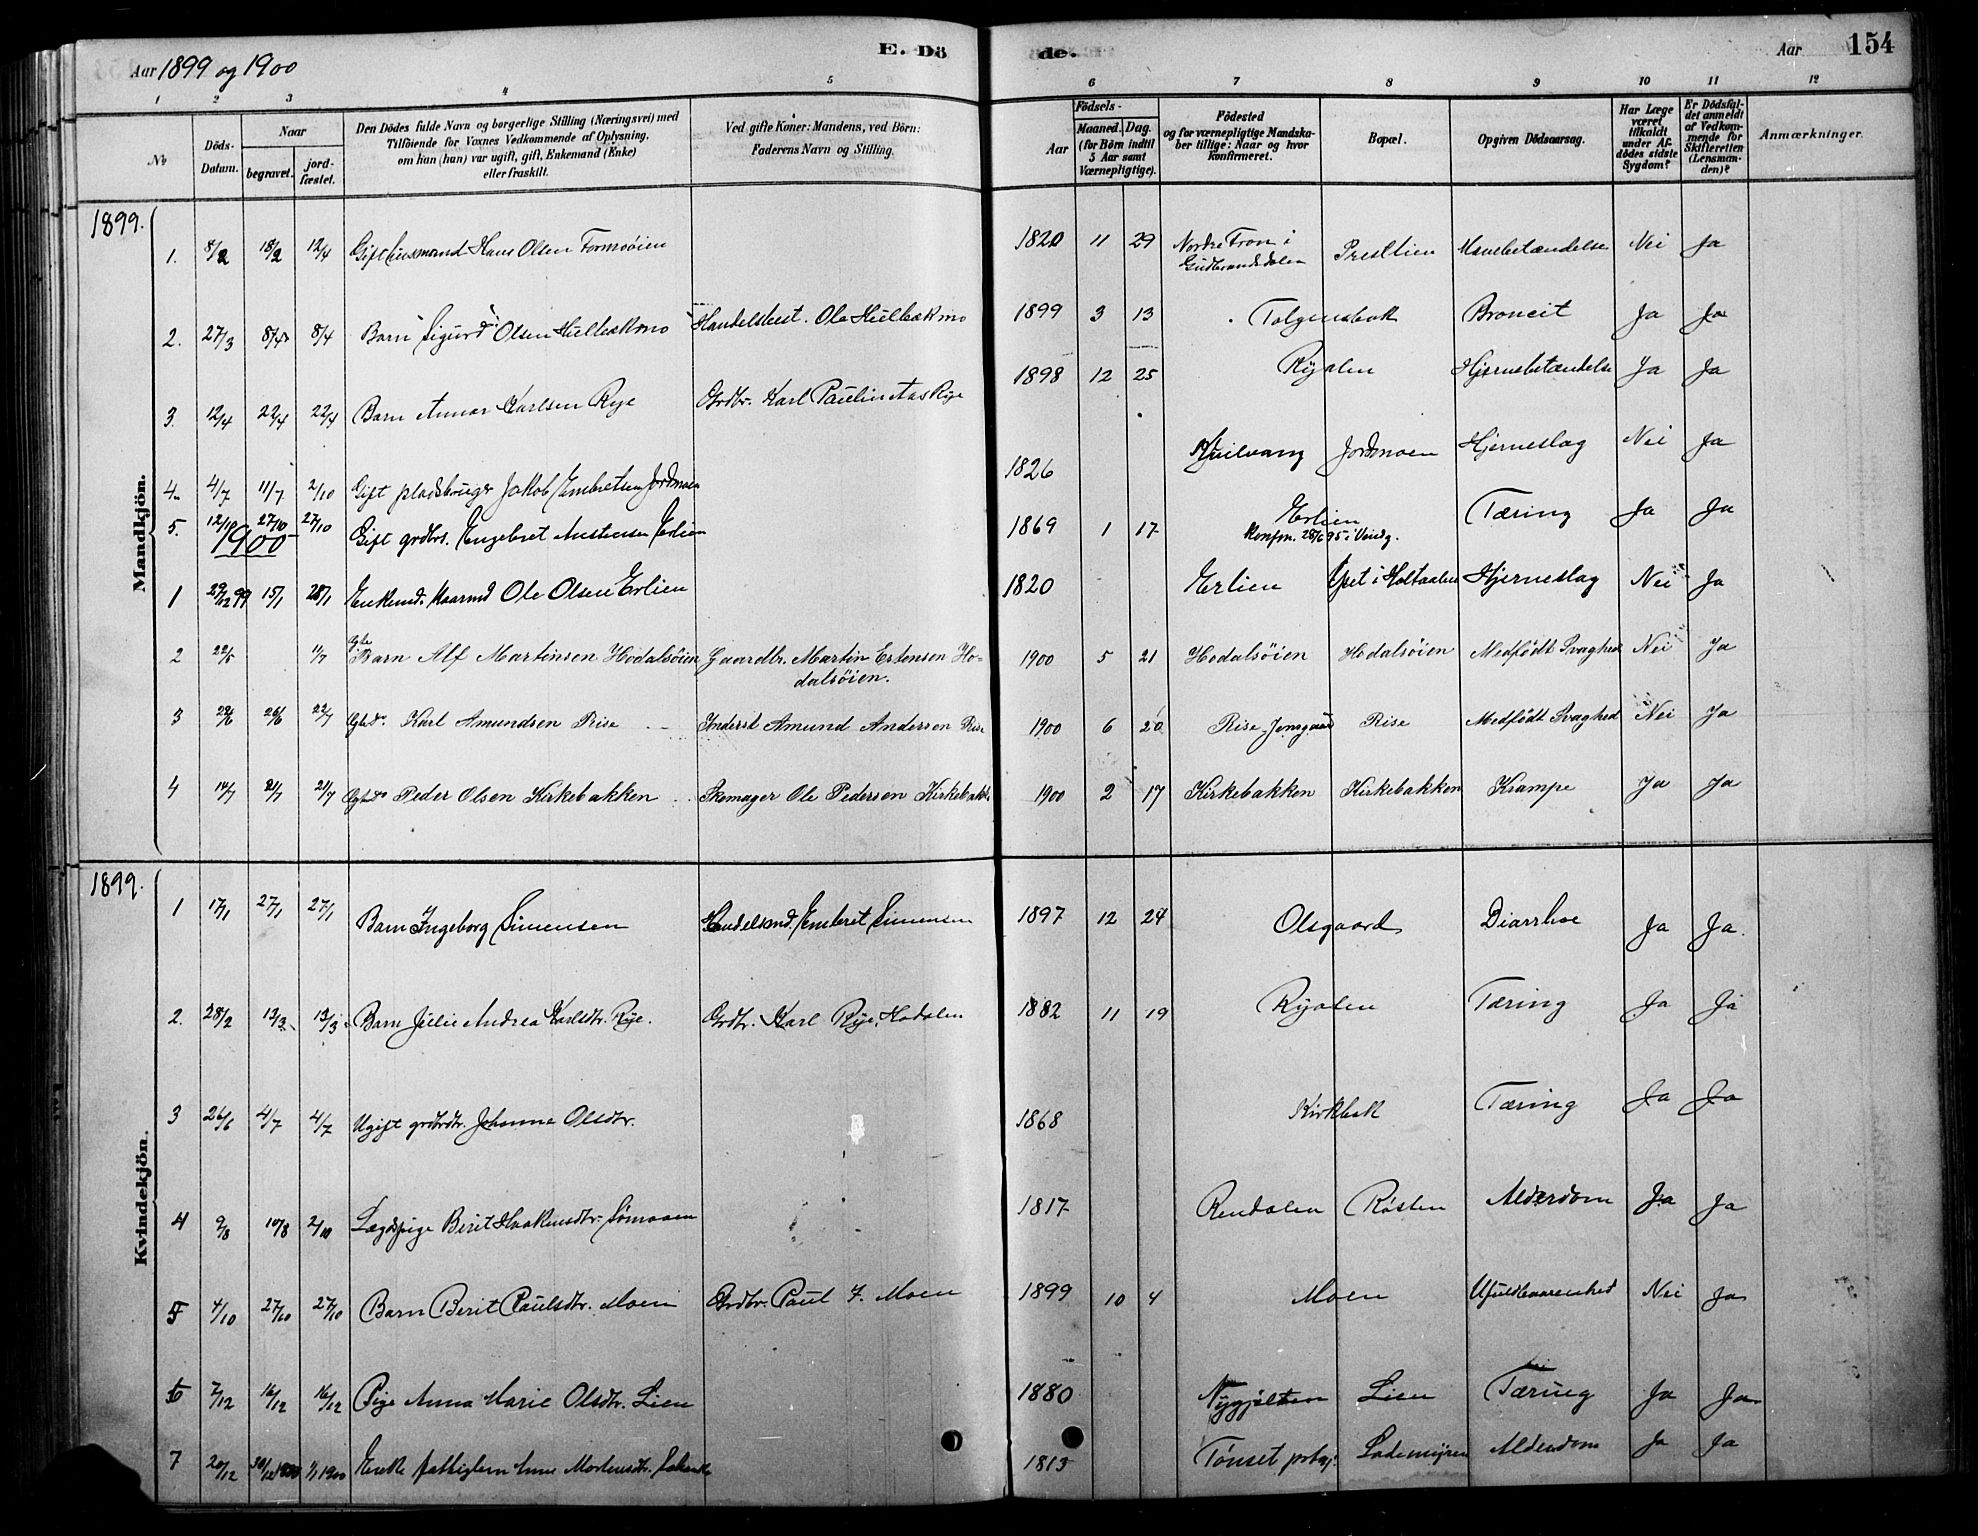 Aar 1899 og 1900
E. Dö
de.
Aar
154
1 2 3 4 5 6 7 8 9 10 11 12
No
Döds-Datum.
Naar
begravet.
jord-fæstet.
Den Dödes fulde Navn og borgerlige Stilling (Næringsvei) med
Tilföiende for Voxnes Vedkommende af Oplysning,
om hun (han) var ugift, gift, Enkemand (Enke)
eller fraskilt.
Ved gifte Koner: Mandens, ved Börn:
Faderens Navn og Stilling.
Födsels-
Aar
Maaned. Dag.
(for Börn indtil
5 Aar samt
Værnepligtige).
Födested
og for værnepligtige Mandska-
ber tillige: Naar og hvor
konfirmeret.
Bopæl.
Opgiven Dödsaarsag.
Har Læge
været
tilkaldt
under Af-
dödes sidste
Sygdom?
Er Dödsfal-
det anmeldt
af Vedkom-
mende for
Skifteretten
(Lensman-
den)?
Anmærkninger.
1899.
Mandkjön.
1. 8/2 18/2 12/4 Gift husmand Hans Olsen Formoöien 1820 11 29 Nordre Fron i Gudbrandsdalen Prestlien Mavebetændelse Nei Ja
2. 27/3 8/4 8/4 Barn "Sigurd" Olsen Hulbækmo Handelsbest. Ole Hulbækmo 1899 3 13 Tolgensbak Broncit Ja Ja
3. 12/4 22/4 22/4 Barn Annar Karlsen Rye Grdbr. Karl Paulin Aas Rye 1898 12 25 Ryalen Hjernebetændelse Ja Ja
4. 4/7 11/7 2/10 Gift pladsbruger Jakob Embretsen Jordmoen 1826 Hvilvang Jordmoen Hjerneslag Nei Ja
5. 12/10 27/10 27/10 Gift grdbr. Engebret Austensen Erlien 1869 1 17 Erlien Konfm. 28/6 95 i Tæring Ja Ja
1900
1 29/12 99 15/1 28/1 Enkemd. Ole Olsen Erlien 1820 Erlien Holtaalen Hjerneslag Nei Ja
2 22/5 1/7 Ægte Barn Alf Martinsen Hodalsöien Gaardbr. Martin Estensen Ho-
dalsöien. 1900 5 21 Hodalsöien Hodalsöien Medfödt Svaghed Nei Ja
3 22/6 26/6 22/7 Karl Amundsen Rise Inderst Amund Andersen Rise 1900 6 20 Rise Jonsgaard Rise Medfödt Svaghed Nei Ja
4 14/7 21/7 21/7 Peder Olsen Kirkebakken Skomager Ole Pedersen Kirkebakk. 1900 2 17 Kirkebakken Kirkebakken Krampe Ja Ja
1899.
Kvindekjön.
1 17/1 27/1 27/1 Barn Ingeborg Simensen Handelsmd. Embret Simensen 1897 12 24 Olsgaard Diarrhoe Ja Ja.
2. 28/2 13/3 13/3 Barn Julie Andrea Karlsdtr. Rye. Grdbr. Karl Rye, Hodalen 1882 11 19 Ryalen Tæring Ja Ja
3 26/6 4/7 4/7 Ugift grdbrdtr. Johanne Olsdtr. 1868 Kirkbak Tæring Ja Ja
4 9/8 10/8 2/10 Lægdspige Berit Haakensdtr. Sömoen 1817 Rendalen Røsten Alderdom Ja Ja
5 4/10 27/10 27/10 Barn Berit Paulsdtr. Moen Grdbr. Paul F. Moen 1899 10 4 Moen Ufuldbaarenhed Nei Ja
6 7/12 16/12 16/12 Pige Anna Marie Olsdtr. Lien 1880 Nygjelten Lien Tæring Ja Ja
7 20/12 30/12 1/1 1900 Enke fattiglem Anne Mortensdtr. 1813 Tönset prstgj. Lademyren Alderdom Ja Ja